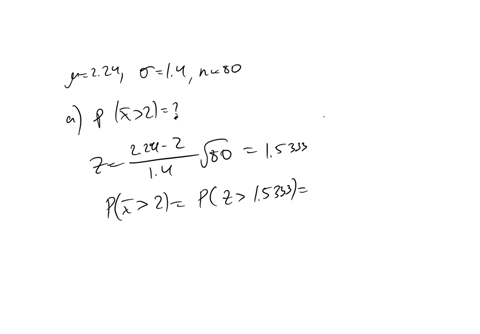 μ=2.24, σ=1.4, n=80
a) P (x̄>2)=?
Z= (2.24-2)/1.4 √80 = 1.5333
P(x̄>2)= P(Z> 1.5333)=